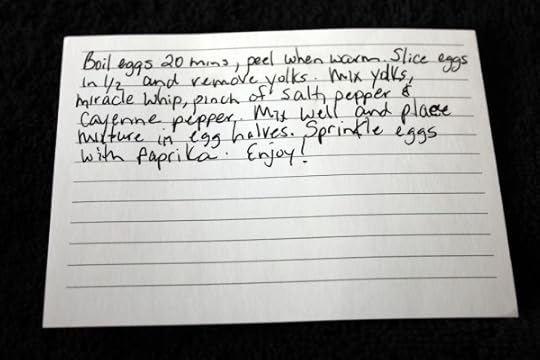 Boil eggs 20 mins, peel when warm. Slice eggs
in 1/2 and remove yolks. Mix yolks,
miracle whip, pinch of salt, pepper &
Cayenne pepper. Mix well and place
mixture in egg halves. Sprinkle eggs
with Paprika. Enjoy!